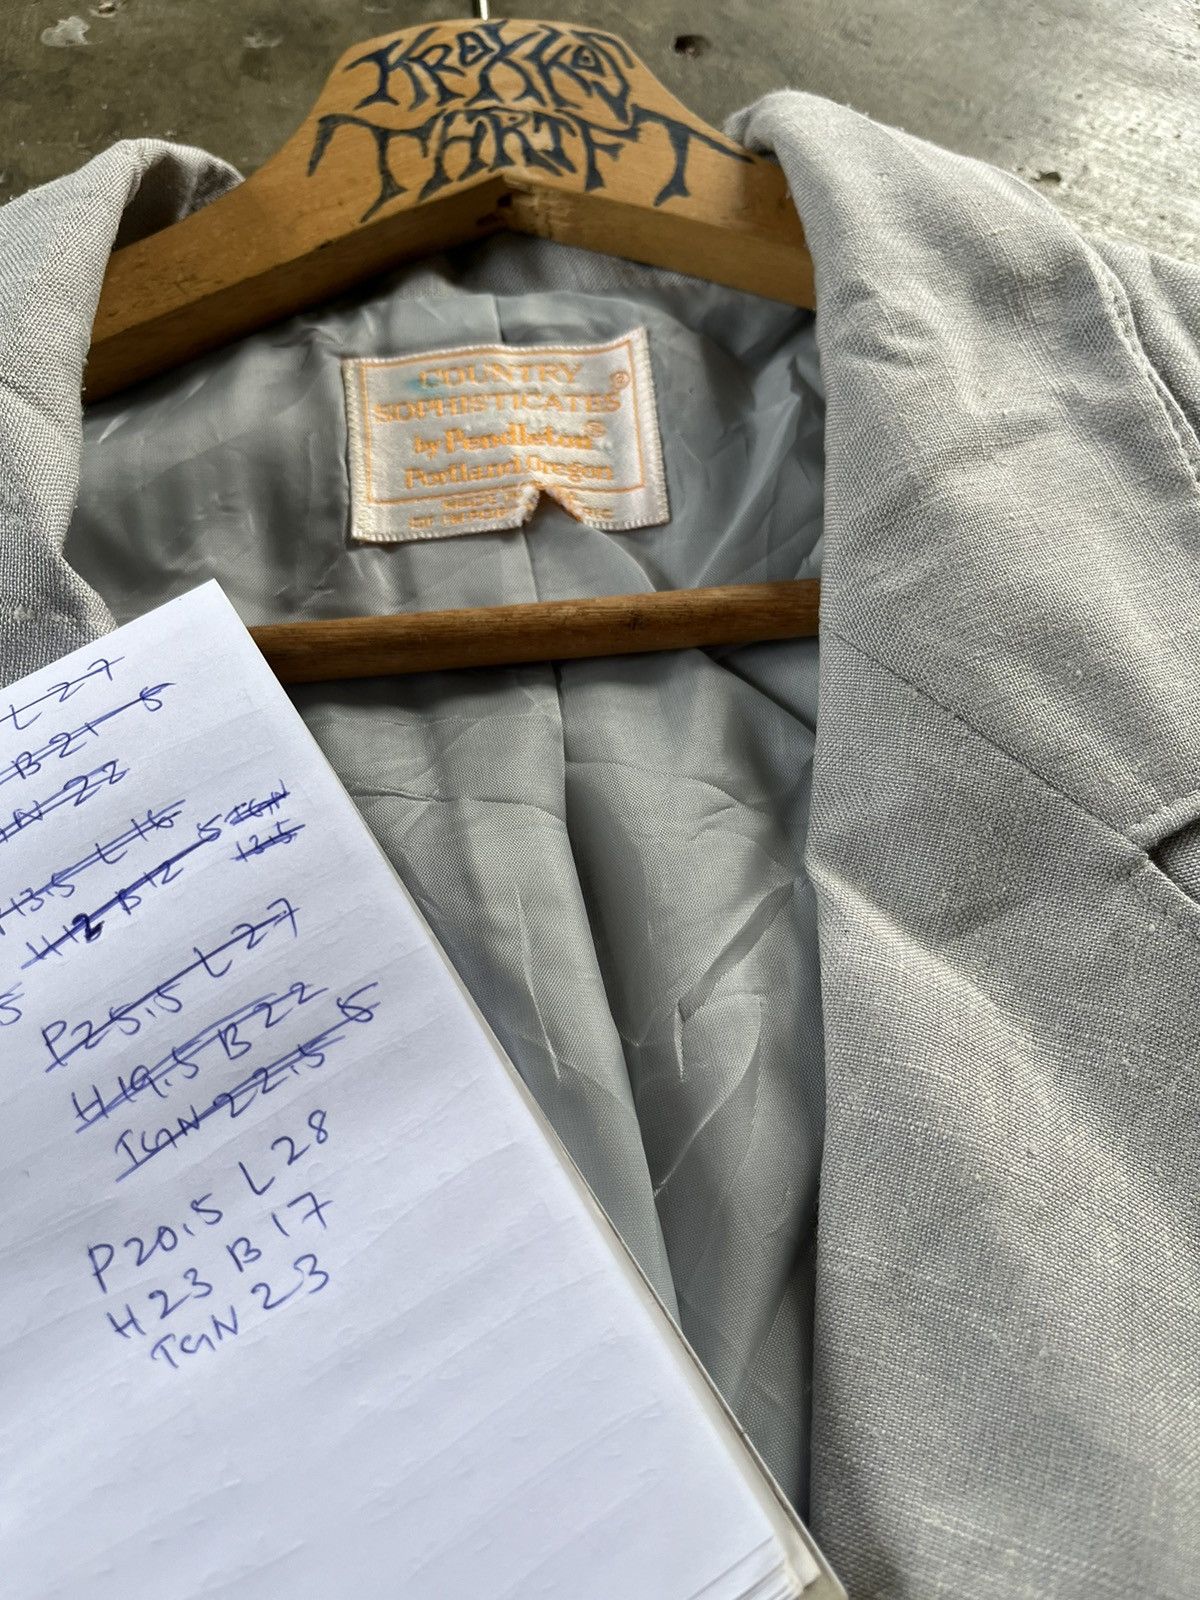 KROKKOS
THRIFT
COUNTRY
SOPHISTICATES®
by Pendleton®
Portland, Oregon
MADE IN
L 27
B 21 5
22
13.5 L 16
H 12 B 12 5 TGN
13.5
P 25.5 L 27
5
H 19.5 B 22
TGN 22.5 5
P 20.5 L 28
H 23 B 17
TGN 23